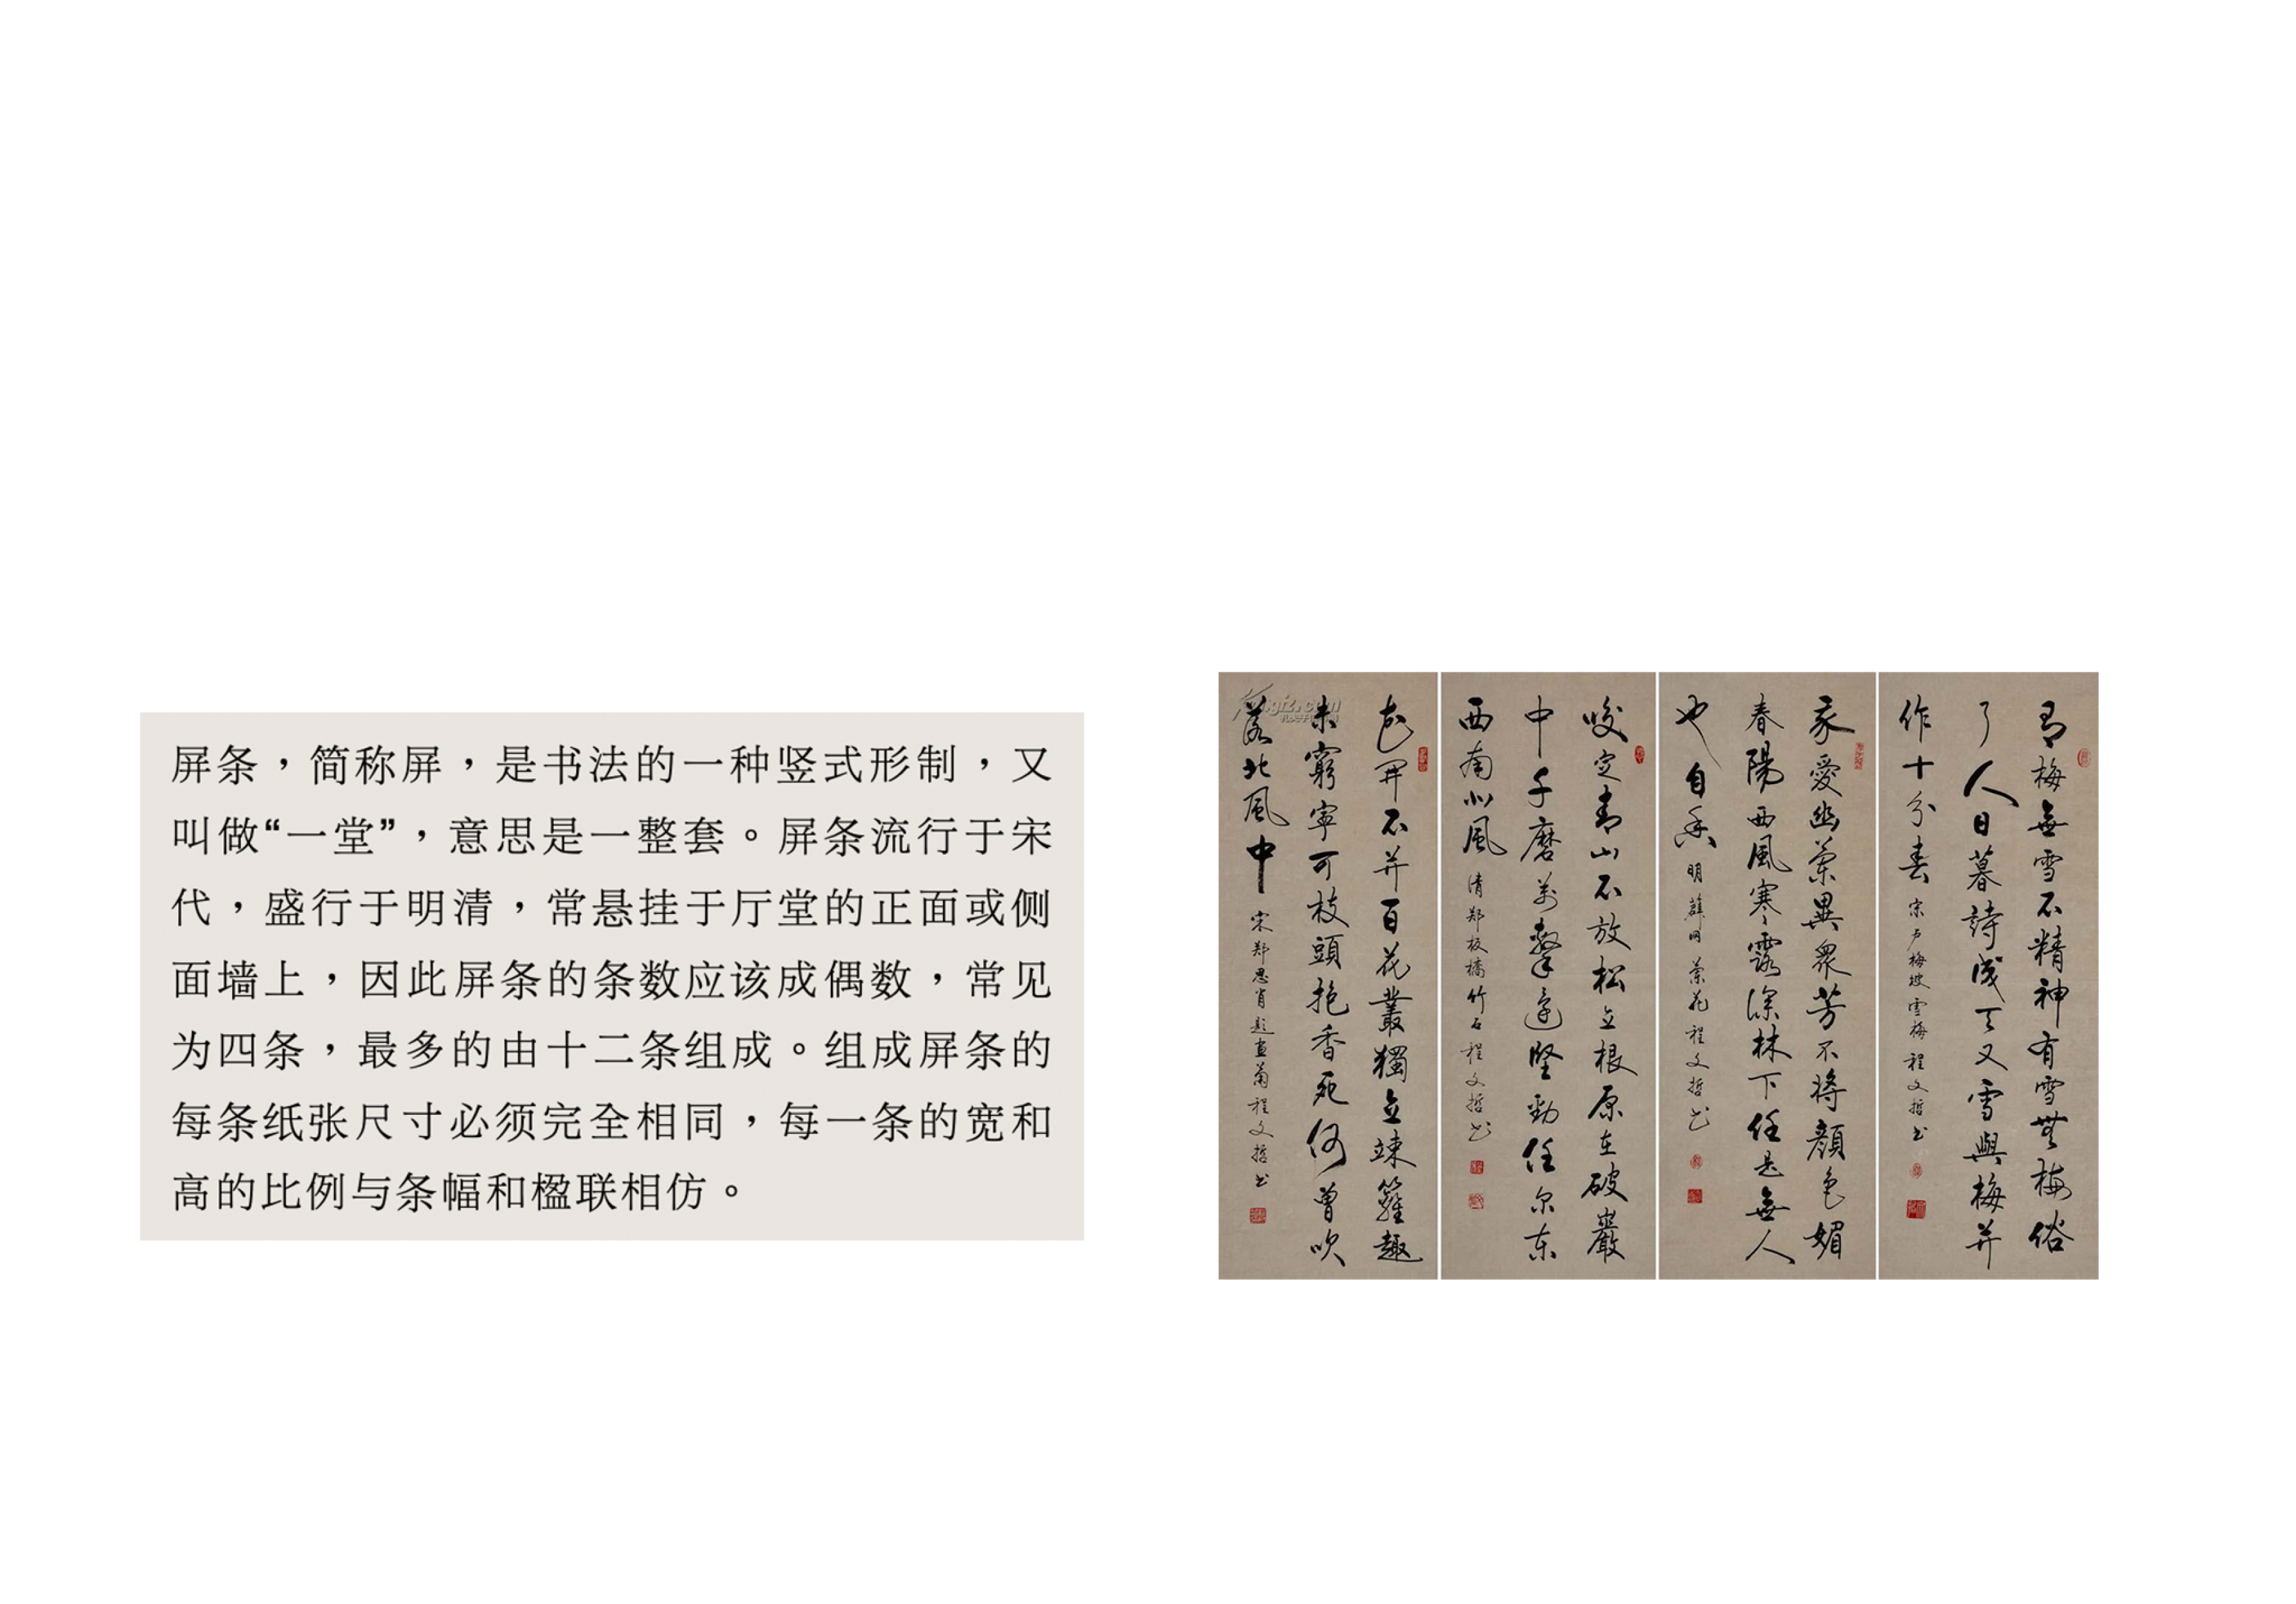 屏条，简称屏，是书法的一种竖式形制，又
叫做“一堂”，意思是一整套。屏条流行于宋
代，盛行于明清，常悬挂于厅堂的正面或侧
面墙上，因此屏条的条数应该成偶数，常见
为四条，最多的由十二条组成。组成屏条的
每条纸张尺寸必须完全相同，每一条的宽和
高的比例与条幅和楹联相仿。
有梅無雪不精神有雪無梅俗
了人日暮詩成天又雪與梅并
作十分春
宋卢梅坡雪梅程文哲书
我愛幽蘭異衆芳不将顔色媚
春陽西風寒露深林下任是無人
也自香
明薛网蘭花程文哲书
咬定青山不放松立根原在破巖
中千磨萬擊還堅勁任尔东
西南北風
清郑板橋竹石程文哲书
花開不并百花叢獨立竦籬趣
未窮寧可枝頭抱香死何曾吹
落北風中
宋郑思肖题画菊程文哲书